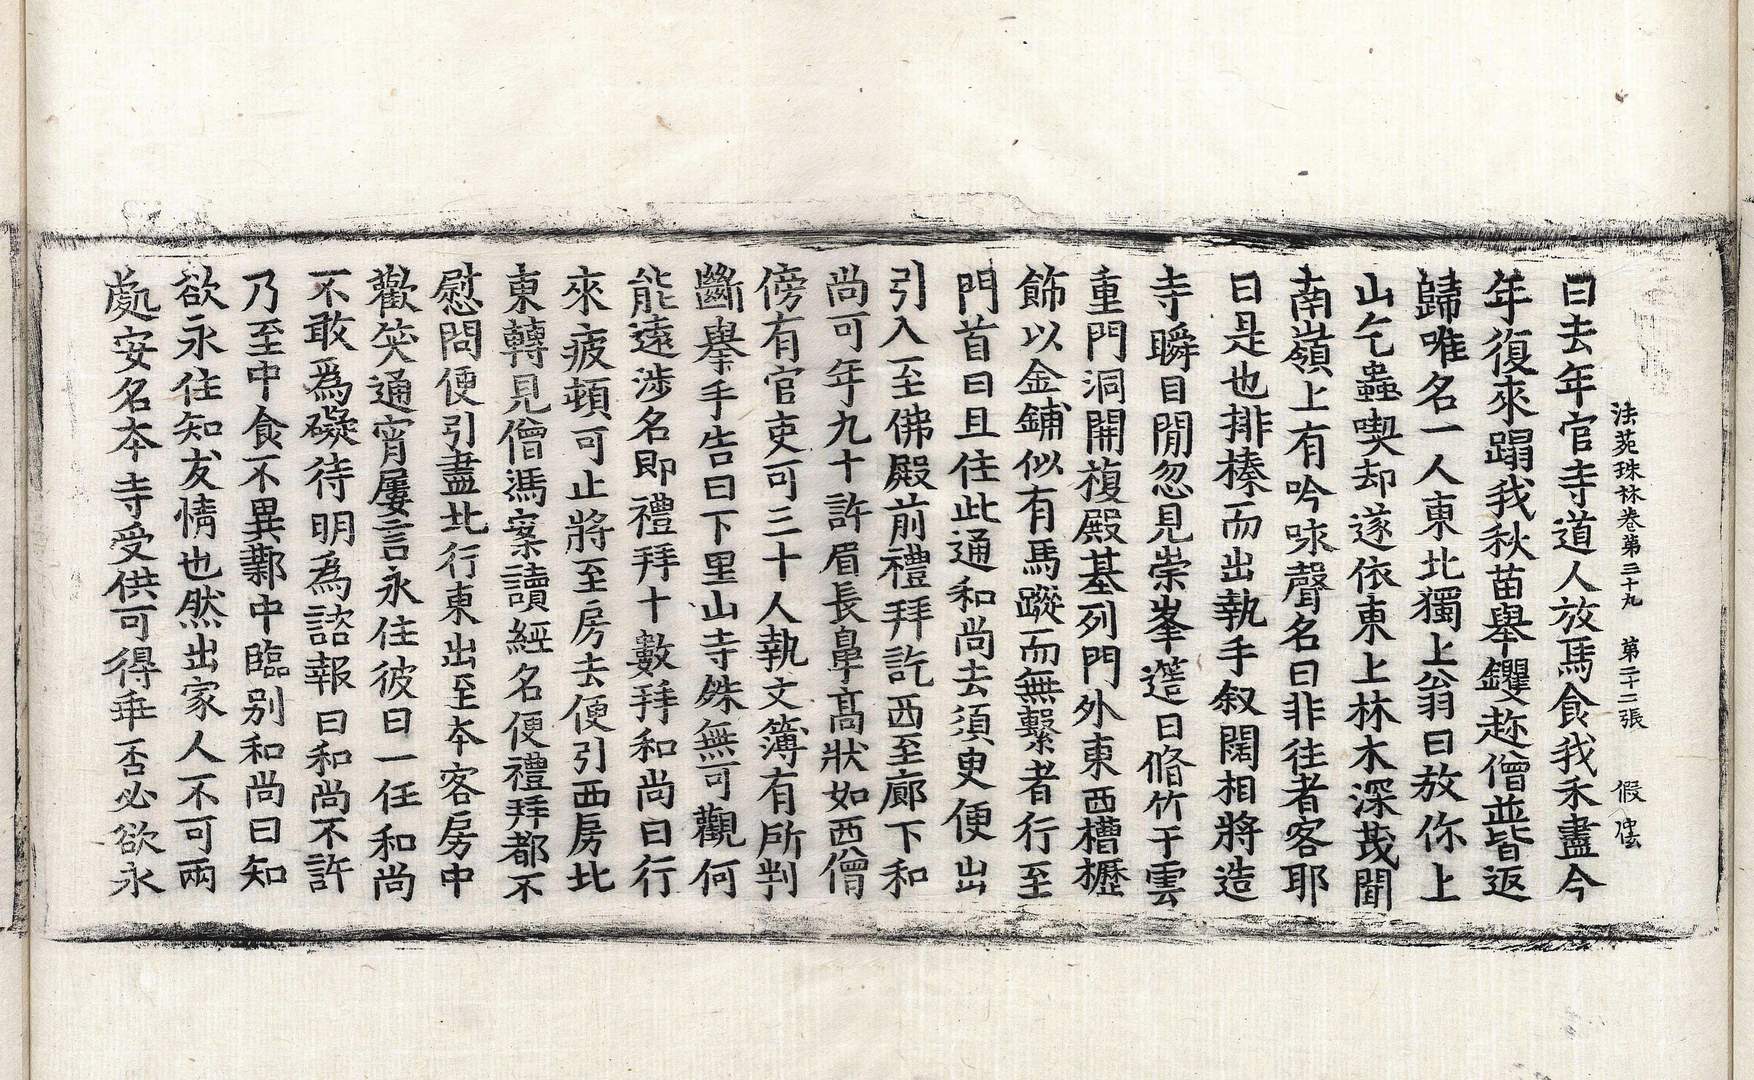 法苑珠林卷第三十九　第二十二張　假㳒
曰去年官寺道人放馬食我禾盡今
年復來蹋我秋苗舉钁趂僧並皆返
歸唯名一人東北獨上翁曰放你上
山乞蟲喫却遂依東上林木深茂聞
南嶺上有吟咏聲名曰非往者客耶
曰是也排榛而出執手叙闊相將造
寺瞬目閒忽見崇峯造日脩竹干雲
重門洞開複殿基列門外東西槽櫪
飾以金鋪似有馬蹤而無繫者行至
門首曰且住此通和尚去須臾便出
引入至佛殿前禮拜訖西至廊下和
尚可年九十許眉長鼻高狀如西僧
傍有官吏可三十人執文簿有所判
斷舉手告曰下里山寺殊無可觀何
能遠涉名即禮拜十數拜和尚曰行
來疲頓可止將至房去便引西房北
東轉見僧馮案讀經名便禮拜都不
慰問便引盡北行東出至本客房中
歡笑通宵屢言永住彼曰一任和尚
不敢爲礙待明爲諮報曰和尚不許
乃至中食不異鄴中臨别和尚曰知
欲永住知友情也然出家人不可兩
處安名本寺受供可得垂否必欲永